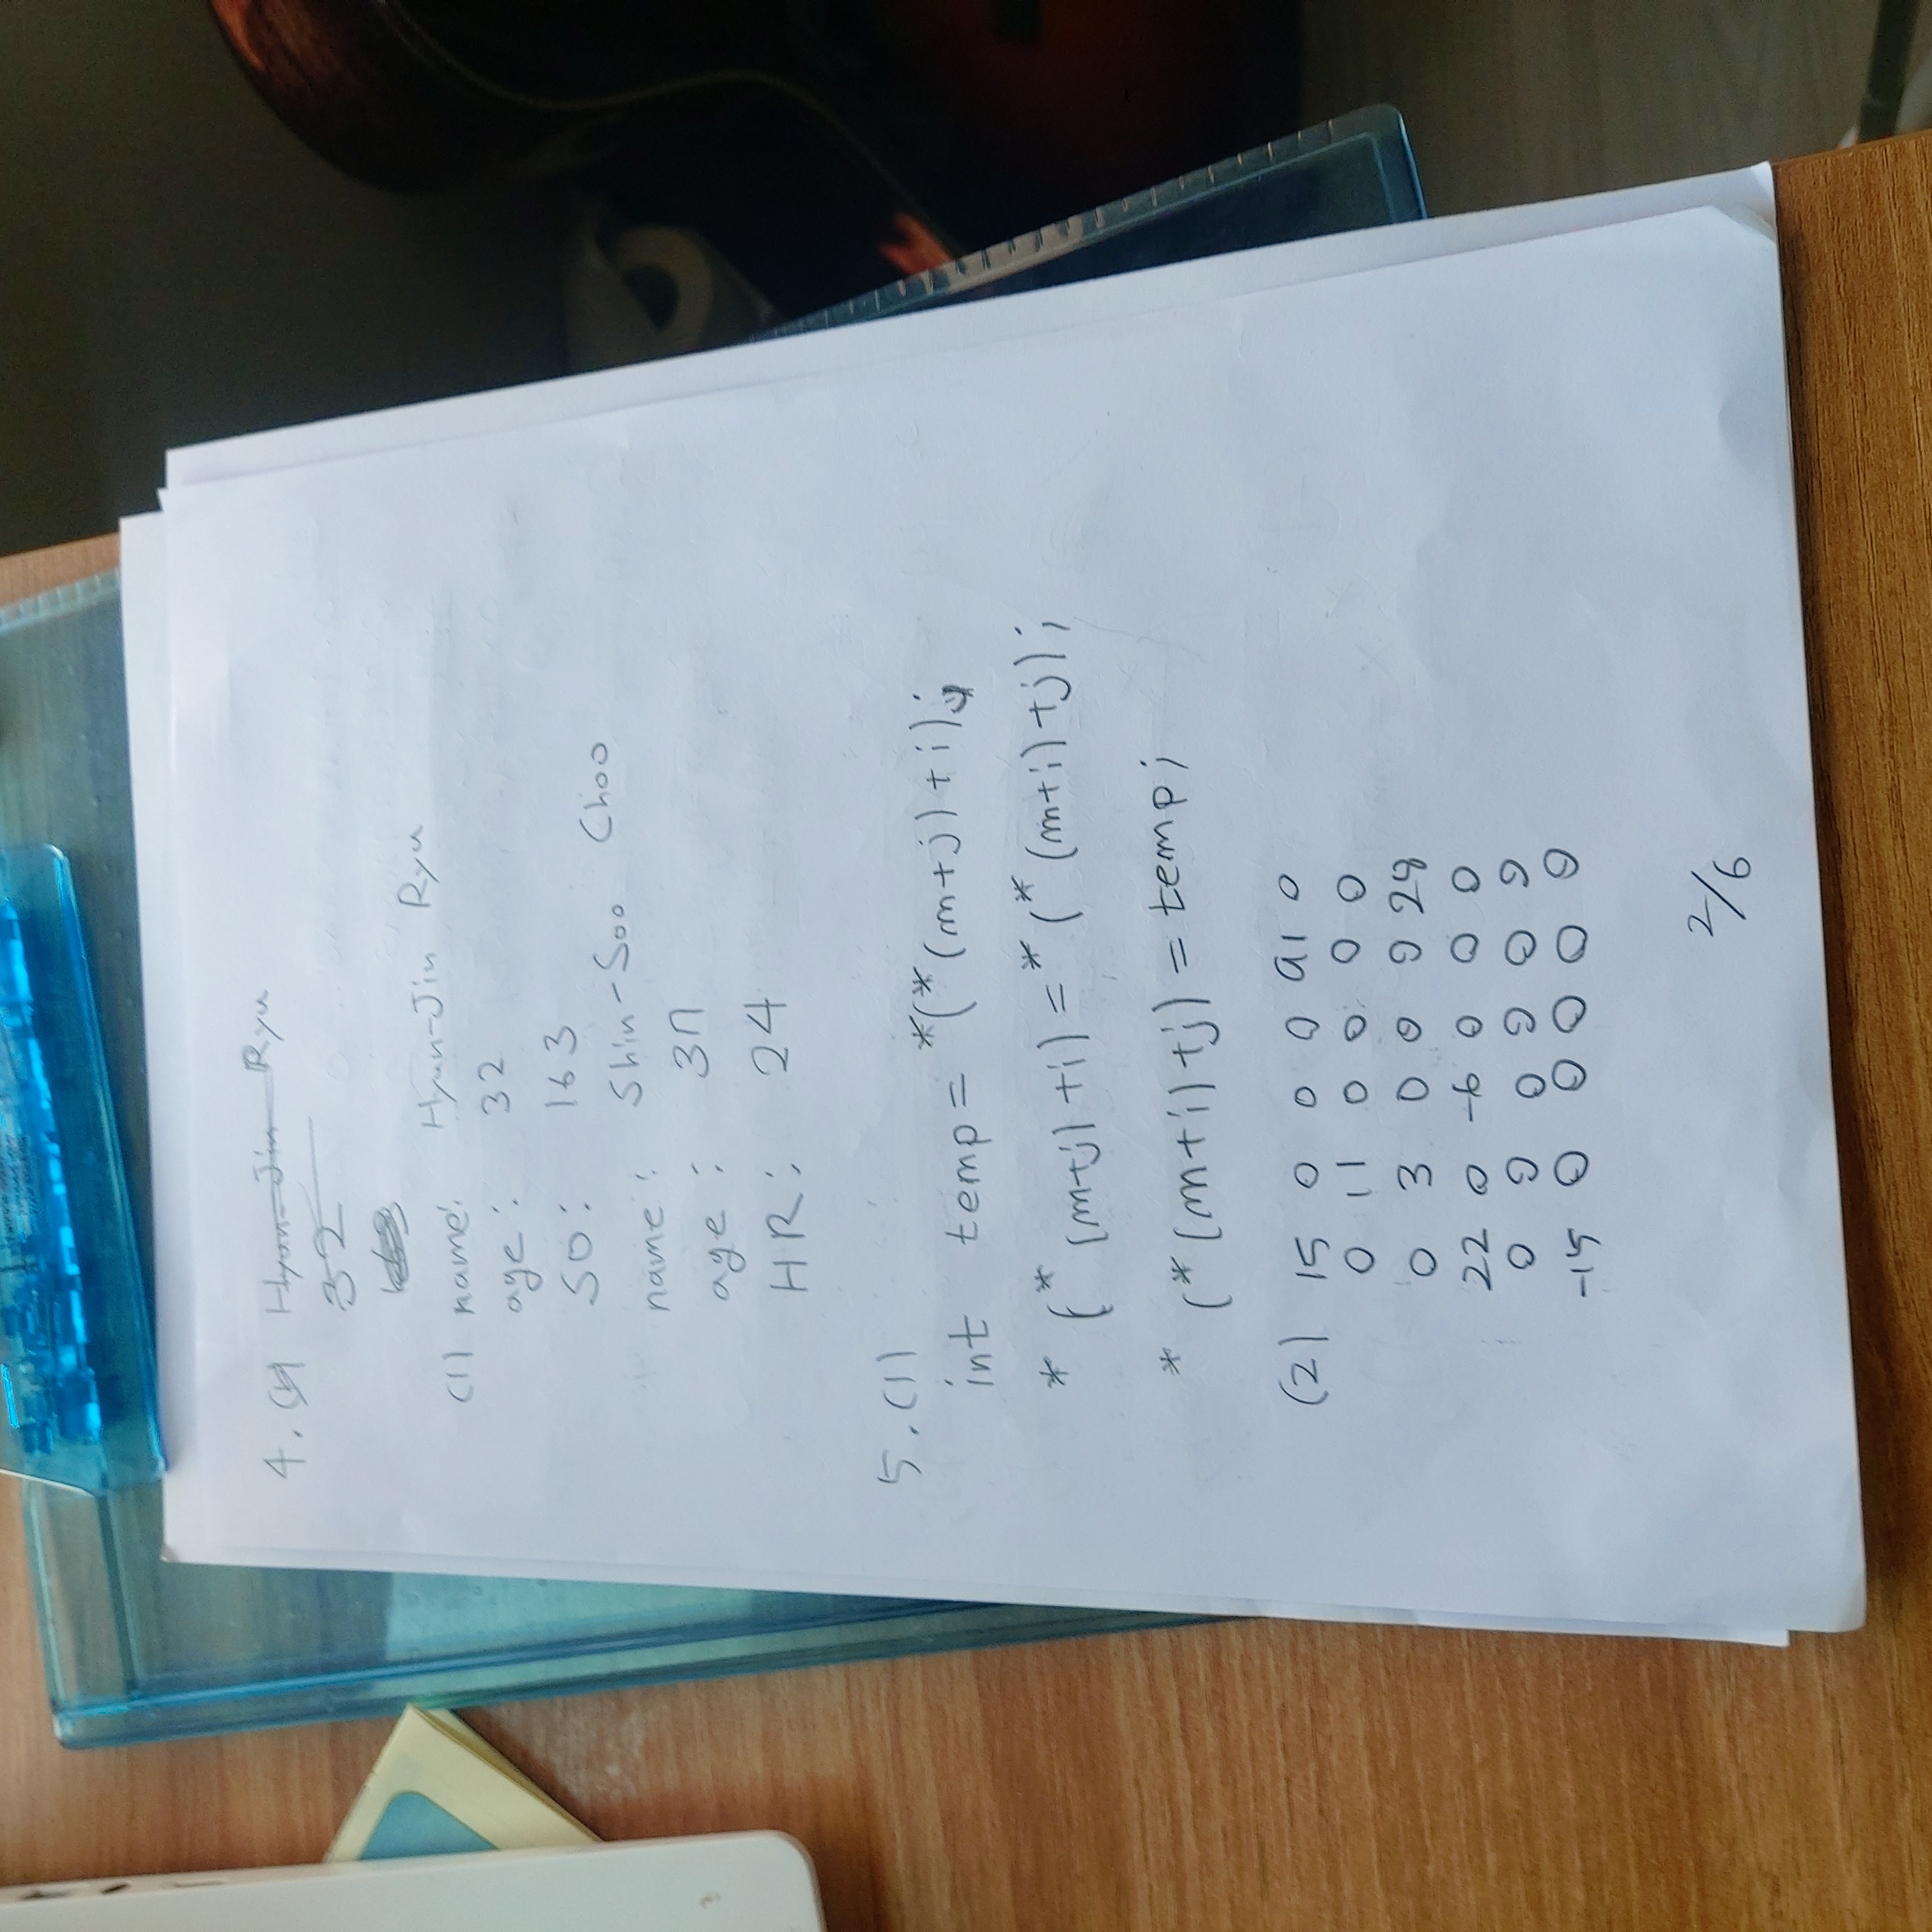 4. (1) Hyun-Jin Ryu
32
(1) name: Hyun-Jin Ryu
age: 32
SO: 163
name: Shin-Soo Choo
age: 37
HR: 24
5. (1)
int temp = *(*(m+j)+i);
*(*(m+j)+i) = *(*(m+i)+j);
*(*(m+i)+j) = temp;
(2) 15 0 0 0 91 0
0 11 0 0 0 0
0 3 0 0 0 28
22 0 -6 0 0 0
0 0 0 0 0 0
-15 0 0 0 0 0
2/6